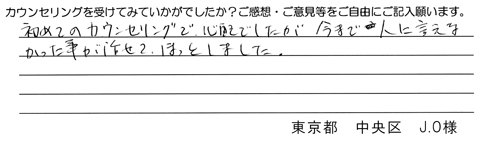 カウンセリングを受けてみていかがでしたか？ご感想・ご意見等をご自由にご記入願います。
初めてのカウンセリングで、心配でしたが 今まで人に言えな
かった事が話せて、ほっとしました。
東京都 中央区 J.O様